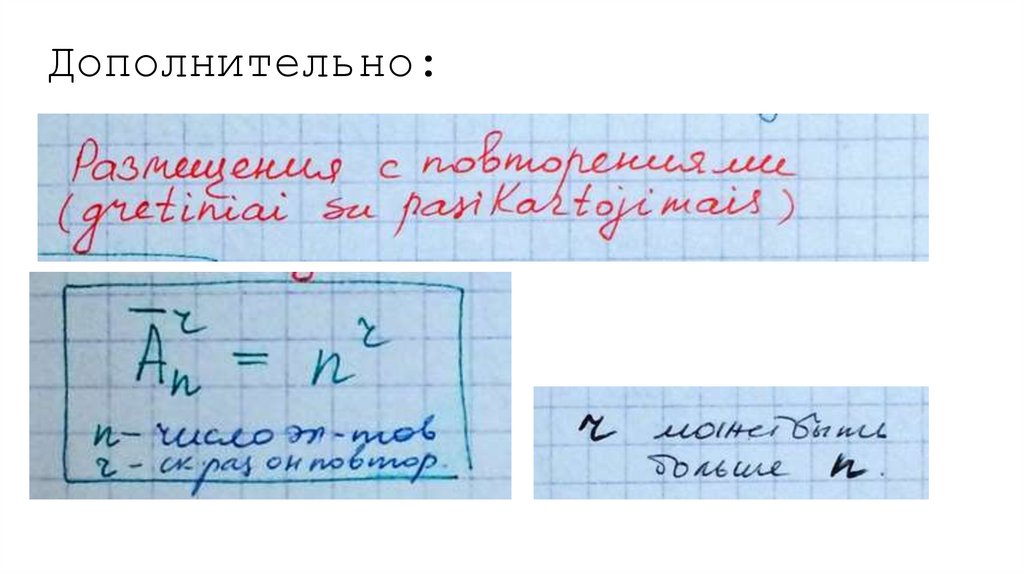 Дополнительно:
Размещения с повторениями
(gretiniai su pasikartojimais)
Ā_n^r = n^r
n – число эл-тов
r – ск раз он повтор.
r может быть
больше n.